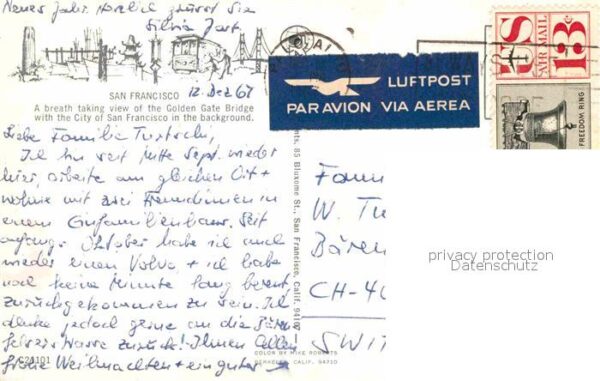 Neues Jahr. Herzlich grüsst Sie
Silvia Jost
SAN FRANCISCO
12. Dez 67
A breath taking view of the Golden Gate Bridge
with the City of San Francisco in the background.
Liebe Familie
Ich bin seit Mitte Sept. wieder
hier, arbeite am gleichen Ort +
wohne mit zwei Freundinnen in
einem Einfamilienhaus. Seit
anfangs Oktober habe ich auch
wieder einen Volvo + ich habe
noch keine Minute lang bereut,
zurückgekommen zu sein. Ich
denke jedoch gerne an die Bären-
felserstrasse zurück! Ihnen allen
frohe Weihnachten + ein gutes →
C21101
COLOR BY MIKE ROBERTS
BERKELEY, CALIF. 94710
85 Bluxome St., San Francisco, Calif. 94107
LUFTPOST
PAR AVION VIA AEREA
US
AIR MAIL
13c
FREEDOM RING
Fam
W. Tu
Bären
CH-40
SWIT
privacy protection
Datenschutz